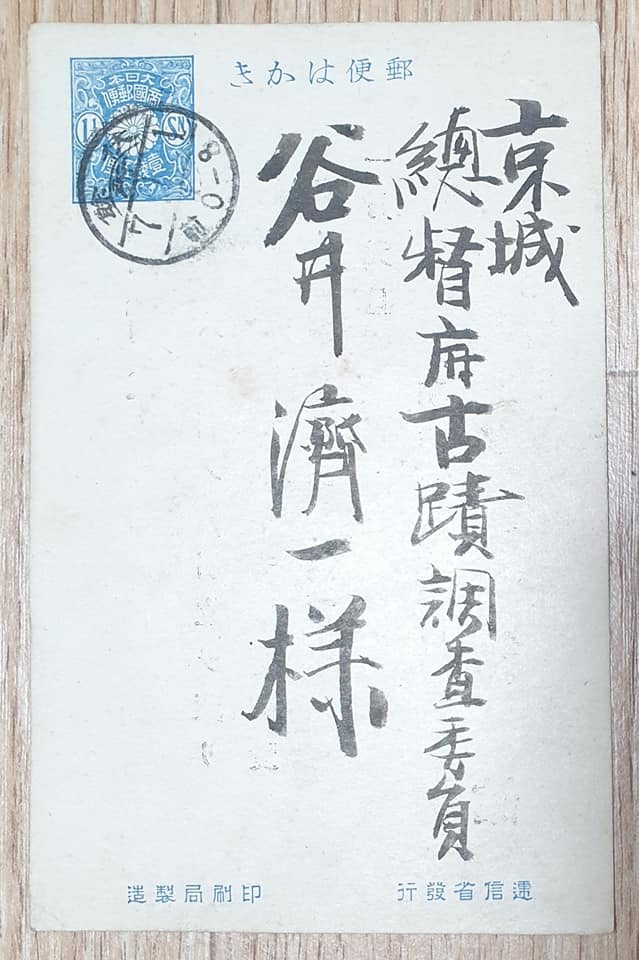 郵便はかき
大日本
帝國郵便
1½ Sⁿ
京城
總督府古蹟調査委員
谷井濟一様
遞信省發行
印刷局製造